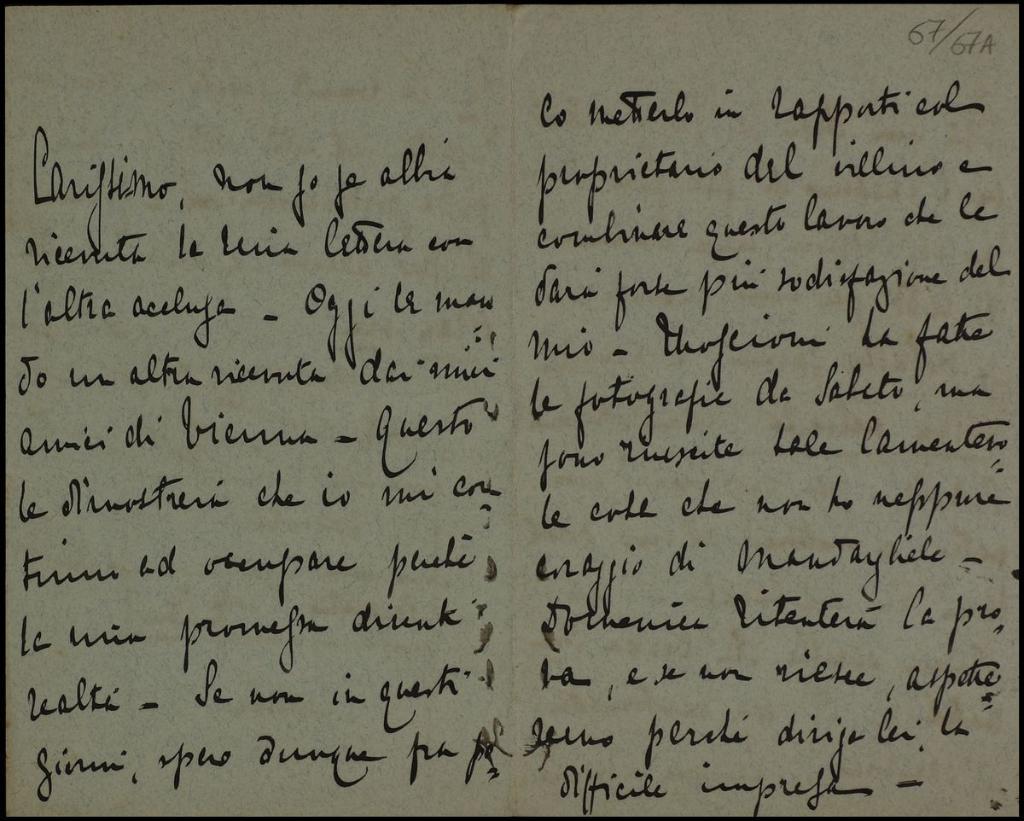 67/67A
Carissimo, non so se abbia
ricevuta la mia lettera con
l'altra acclusa - Oggi le man
do un altra ricevuta dai miei
amici di Vienna - Questo
le dimostrerà che io mi con
tinuo ad occupare perché
la mia promessa diventi
realtà - Se non in questi
giorni, spero dunque fra po=
co metterlo in rapporti col
proprietario del villino e
combinare questo lavoro che le
darà forse più sodisfazione del
mio - Moscioni ha fatte
le fotografie da Sabeto, ma
sono riuscite tale lamentevo=
le cosa che non ho neppure
coraggio di mandargliele -
Domenica ritenterà la pro=
va, e se non riesce, aspette=
remo perché diriga lei, la
difficile impresa -